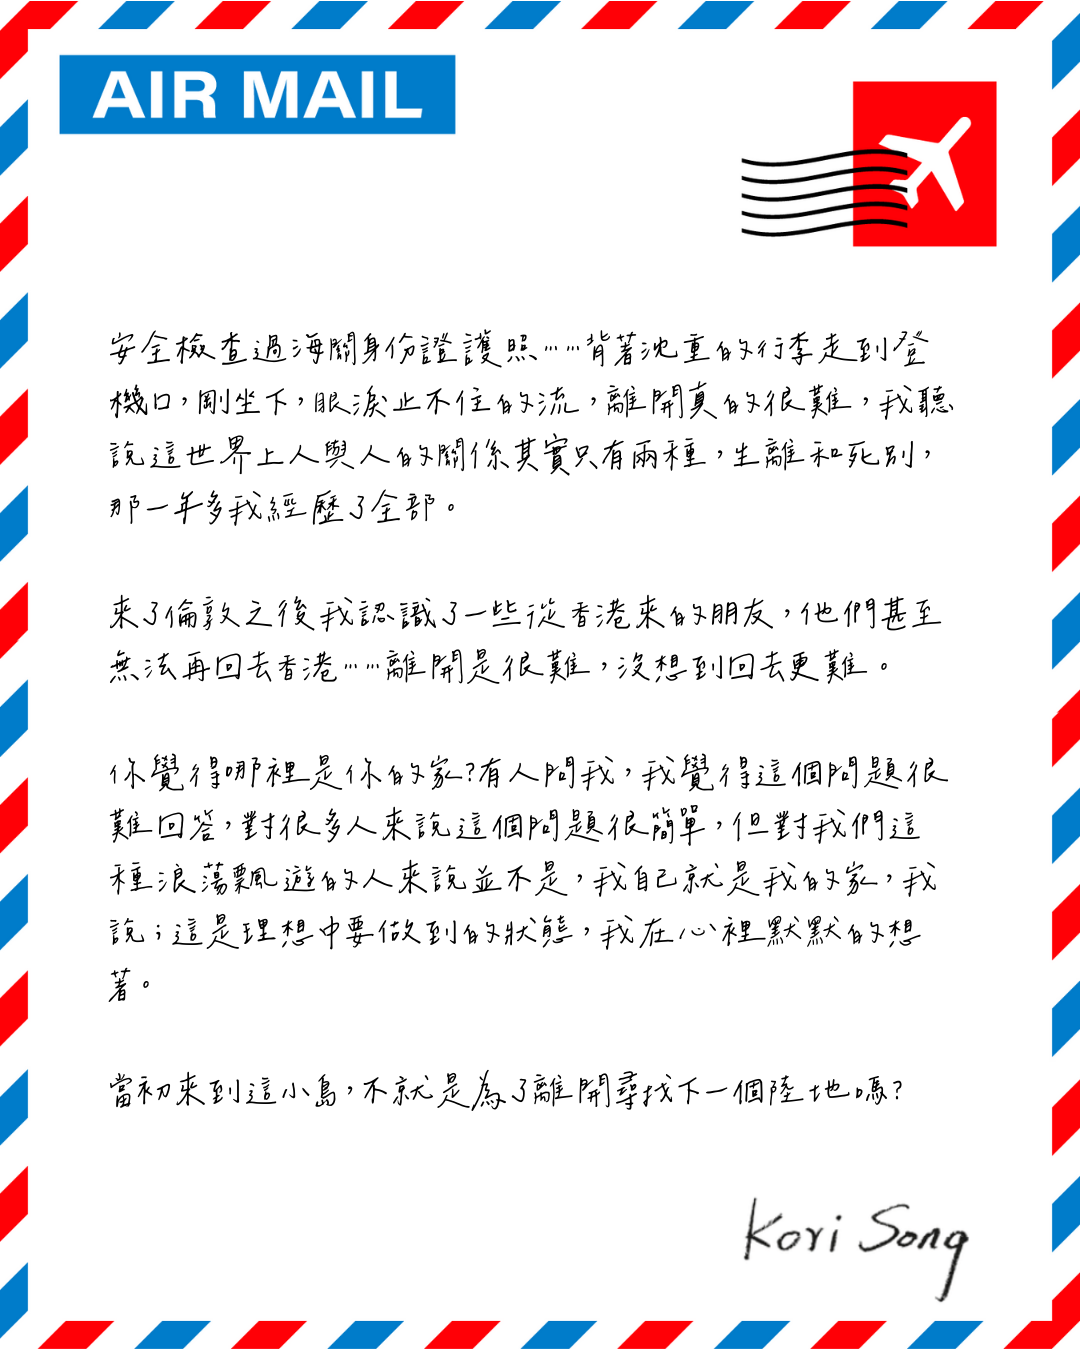 AIR MAIL
安全檢查過海關身份證護照……背著沈重的行李走到登
機口，剛坐下，眼淚止不住的流，離開真的很難，我聽
說這世界上人與人的關係其實只有兩種，生離和死別，
那一年多我經歷了全部。
來了倫敦之後我認識了一些從香港來的朋友，他們甚至
無法再回去香港……離開是很難，沒想到回去更難。
你覺得哪裡是你的家?有人問我，我覺得這個問題很
難回答，對很多人來說這個問題很簡單，但對我們這
種浪蕩飄遊的人來說並不是，我自己就是我的家，我
說；這是理想中要做到的狀態，我在心裡默默的想
著。
當初來到這小島，不就是為了離開尋找下一個陸地嗎?
Kori Song